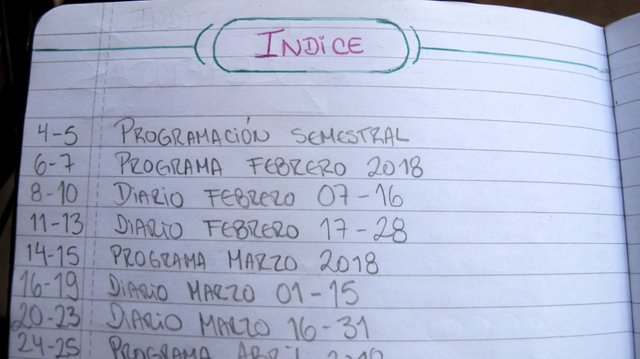 INDICE
4-5 PROGRAMACIÓN SEMESTRAL
6-7 PROGRAMA FEBRERO 2018
8-10 DIARIO FEBRERO 07-16
11-13 DIARIO FEBRERO 17-28
14-15 PROGRAMA MARZO 2018
16-19 DIARIO MARZO 01-15
20-23 DIARIO MARZO 16-31
24-25 PROGRAMA ABRIL 2018